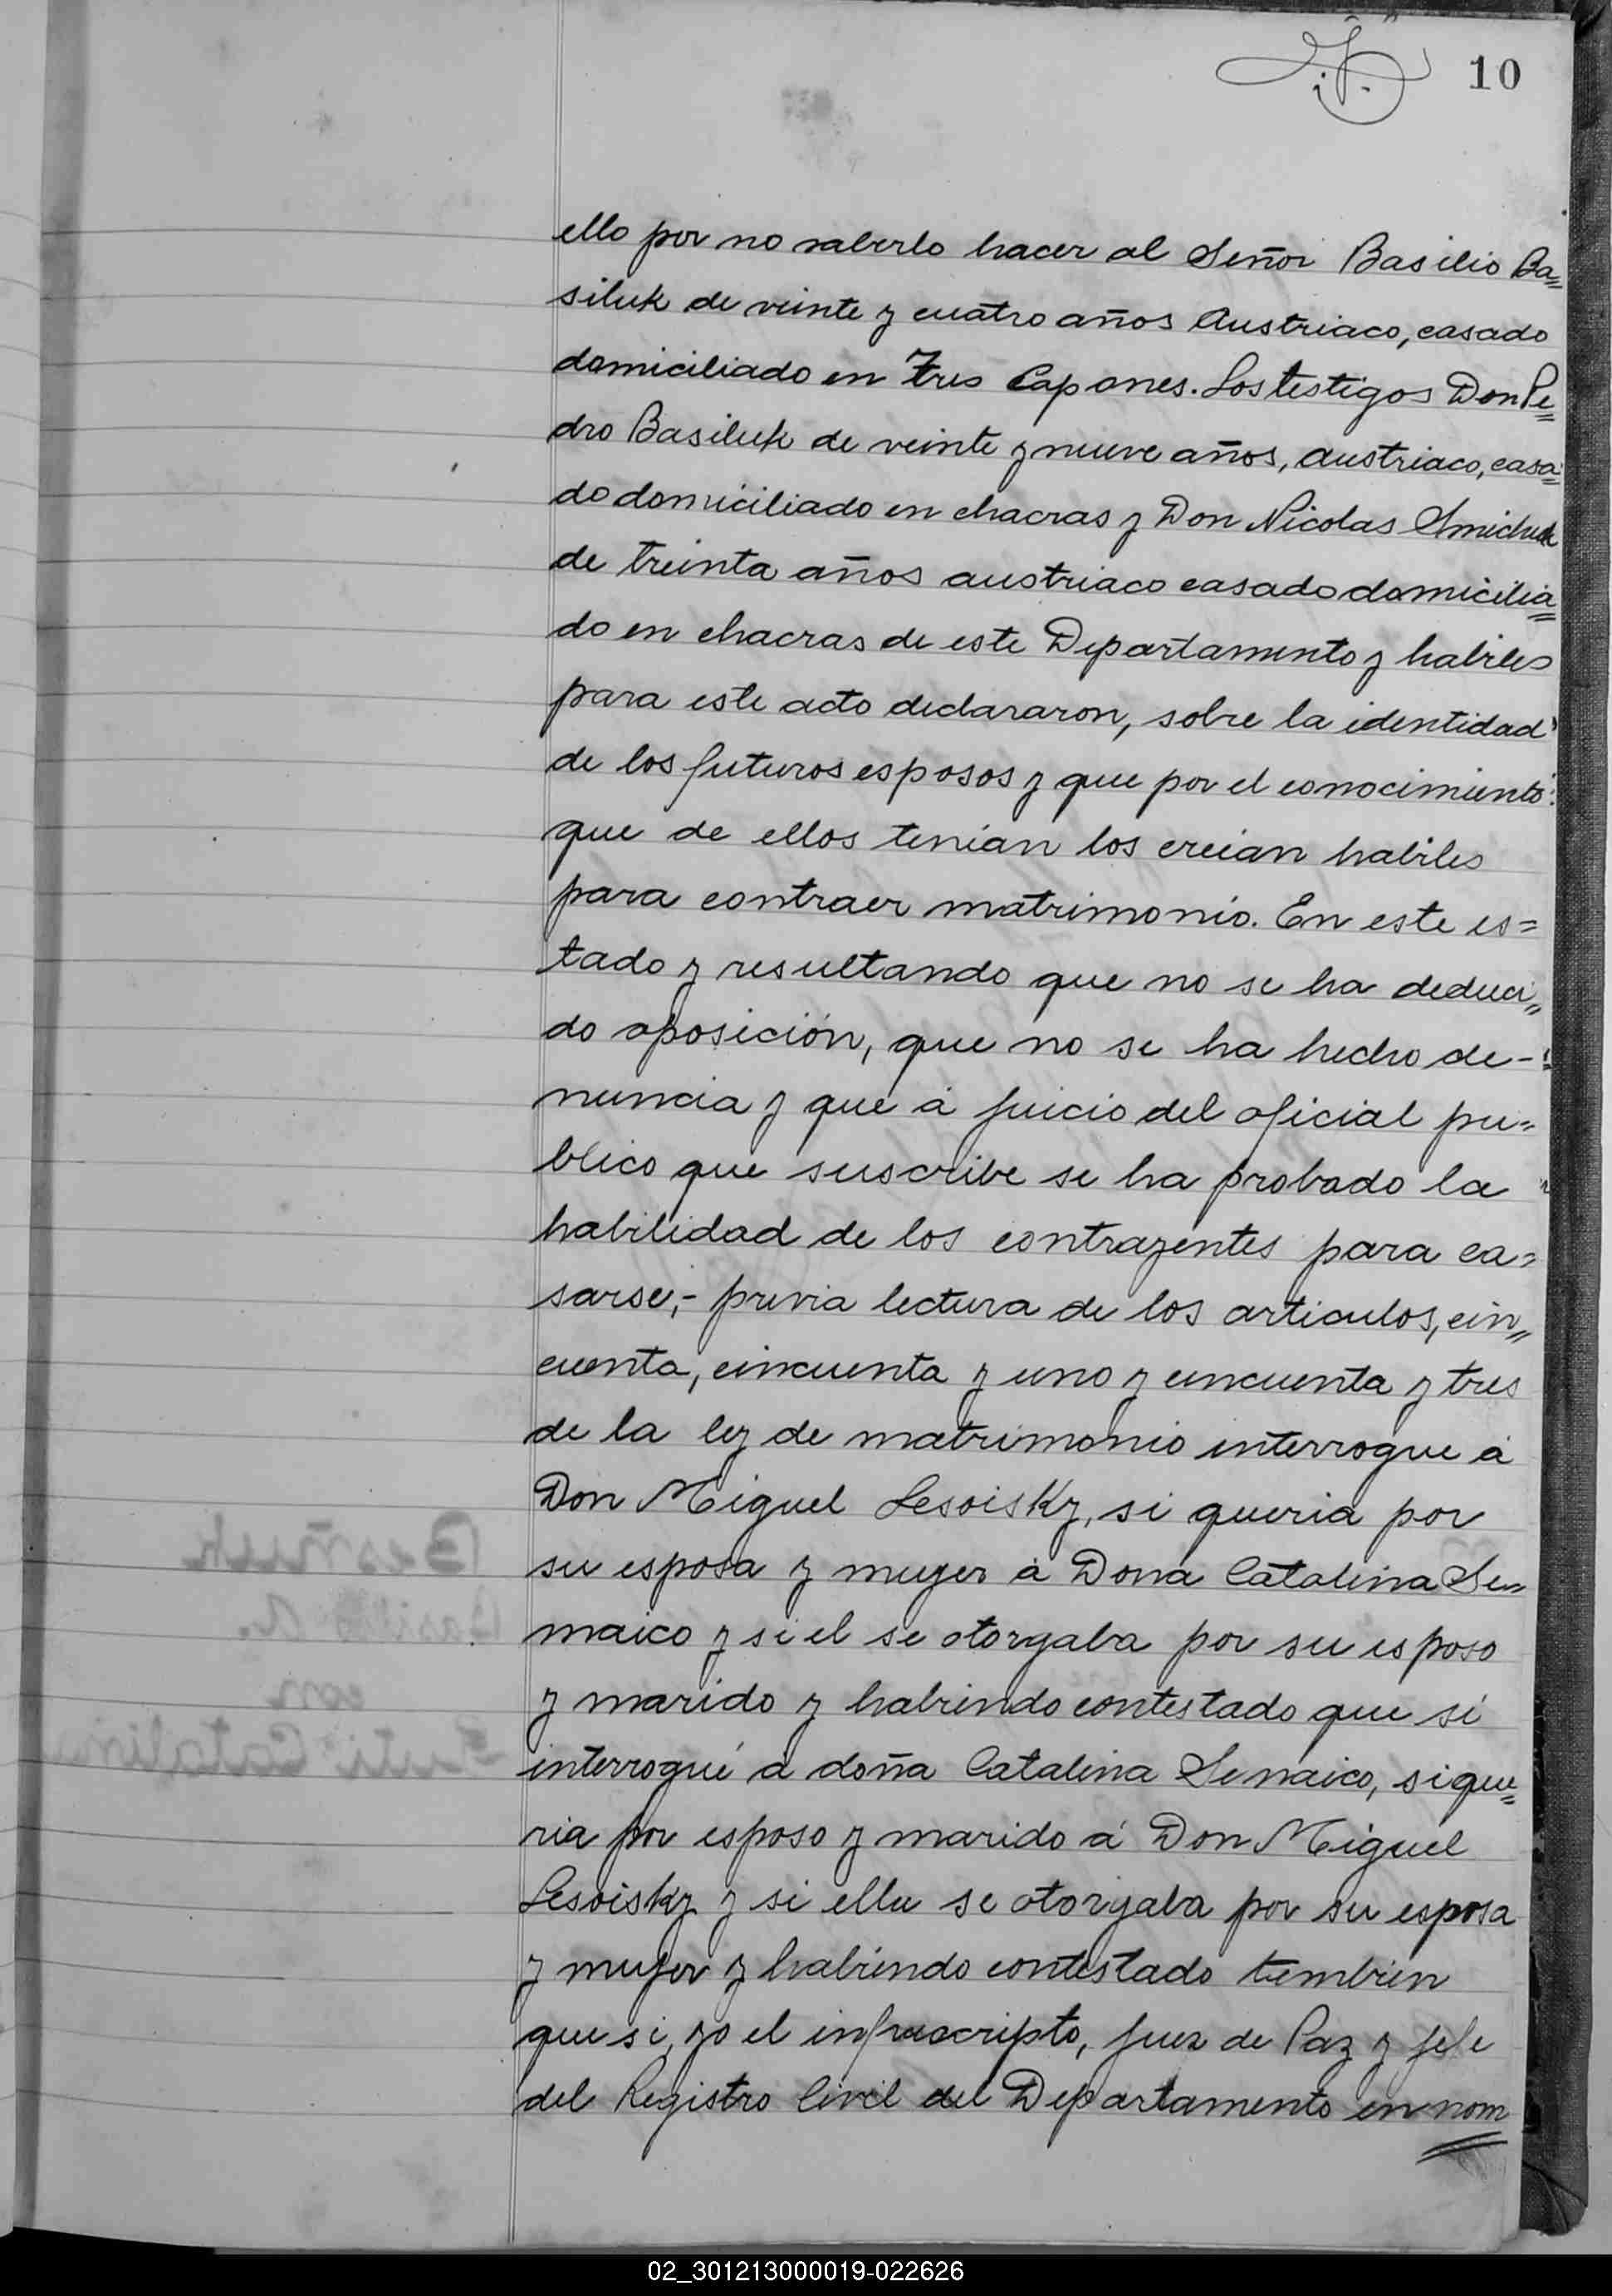 10
ello por no saberlo hacer al Señor Basilio Ba=
siluk de veinte y cuatro años Austriaco, casado
domiciliado en Tres Capones. Los testigos Don Pe=
dro Basiluk de veinte y nueve años, austriaco, casa=
do domiciliado en chacras y Don Nicolas
de treinta años austriaco casado domicilia=
do en chacras de este Departamento y habiles
para este acto declararon, sobre la identidad
de los futuros esposos y que por el conocimiento
que de ellos tenian los creian habiles
para contraer matrimonio. En este es=
tado y resultando que no se ha deduci„
do oposición, que no se ha hecho de-
nuncia y que á juicio del oficial pu=
blico que suscribe se ha probado la
habilidad de los contrayentes para ca=
sarse;- previa lectura de los articulos, cin„
cuenta, cincuenta y uno y cincuenta y tres
de la ley de matrimonio interrogue á
Don Miguel Lesoisky, si queria por
su esposa y muger á Dona Catalina Se=
maico y si el se otorgaba por su esposo
y marido y habiendo contestado que sí
interrogué á doña Catalina Semaico, si que=
ria por esposo y marido á Don Miguel
Lesoisky y si ella se otorgaba por su esposa
y mujer y habiendo contestado tambien
que si, yo el infrascripto, juez de Paz y jefe
del Registro Civil del Departamento en nom
02_301213000019-022626